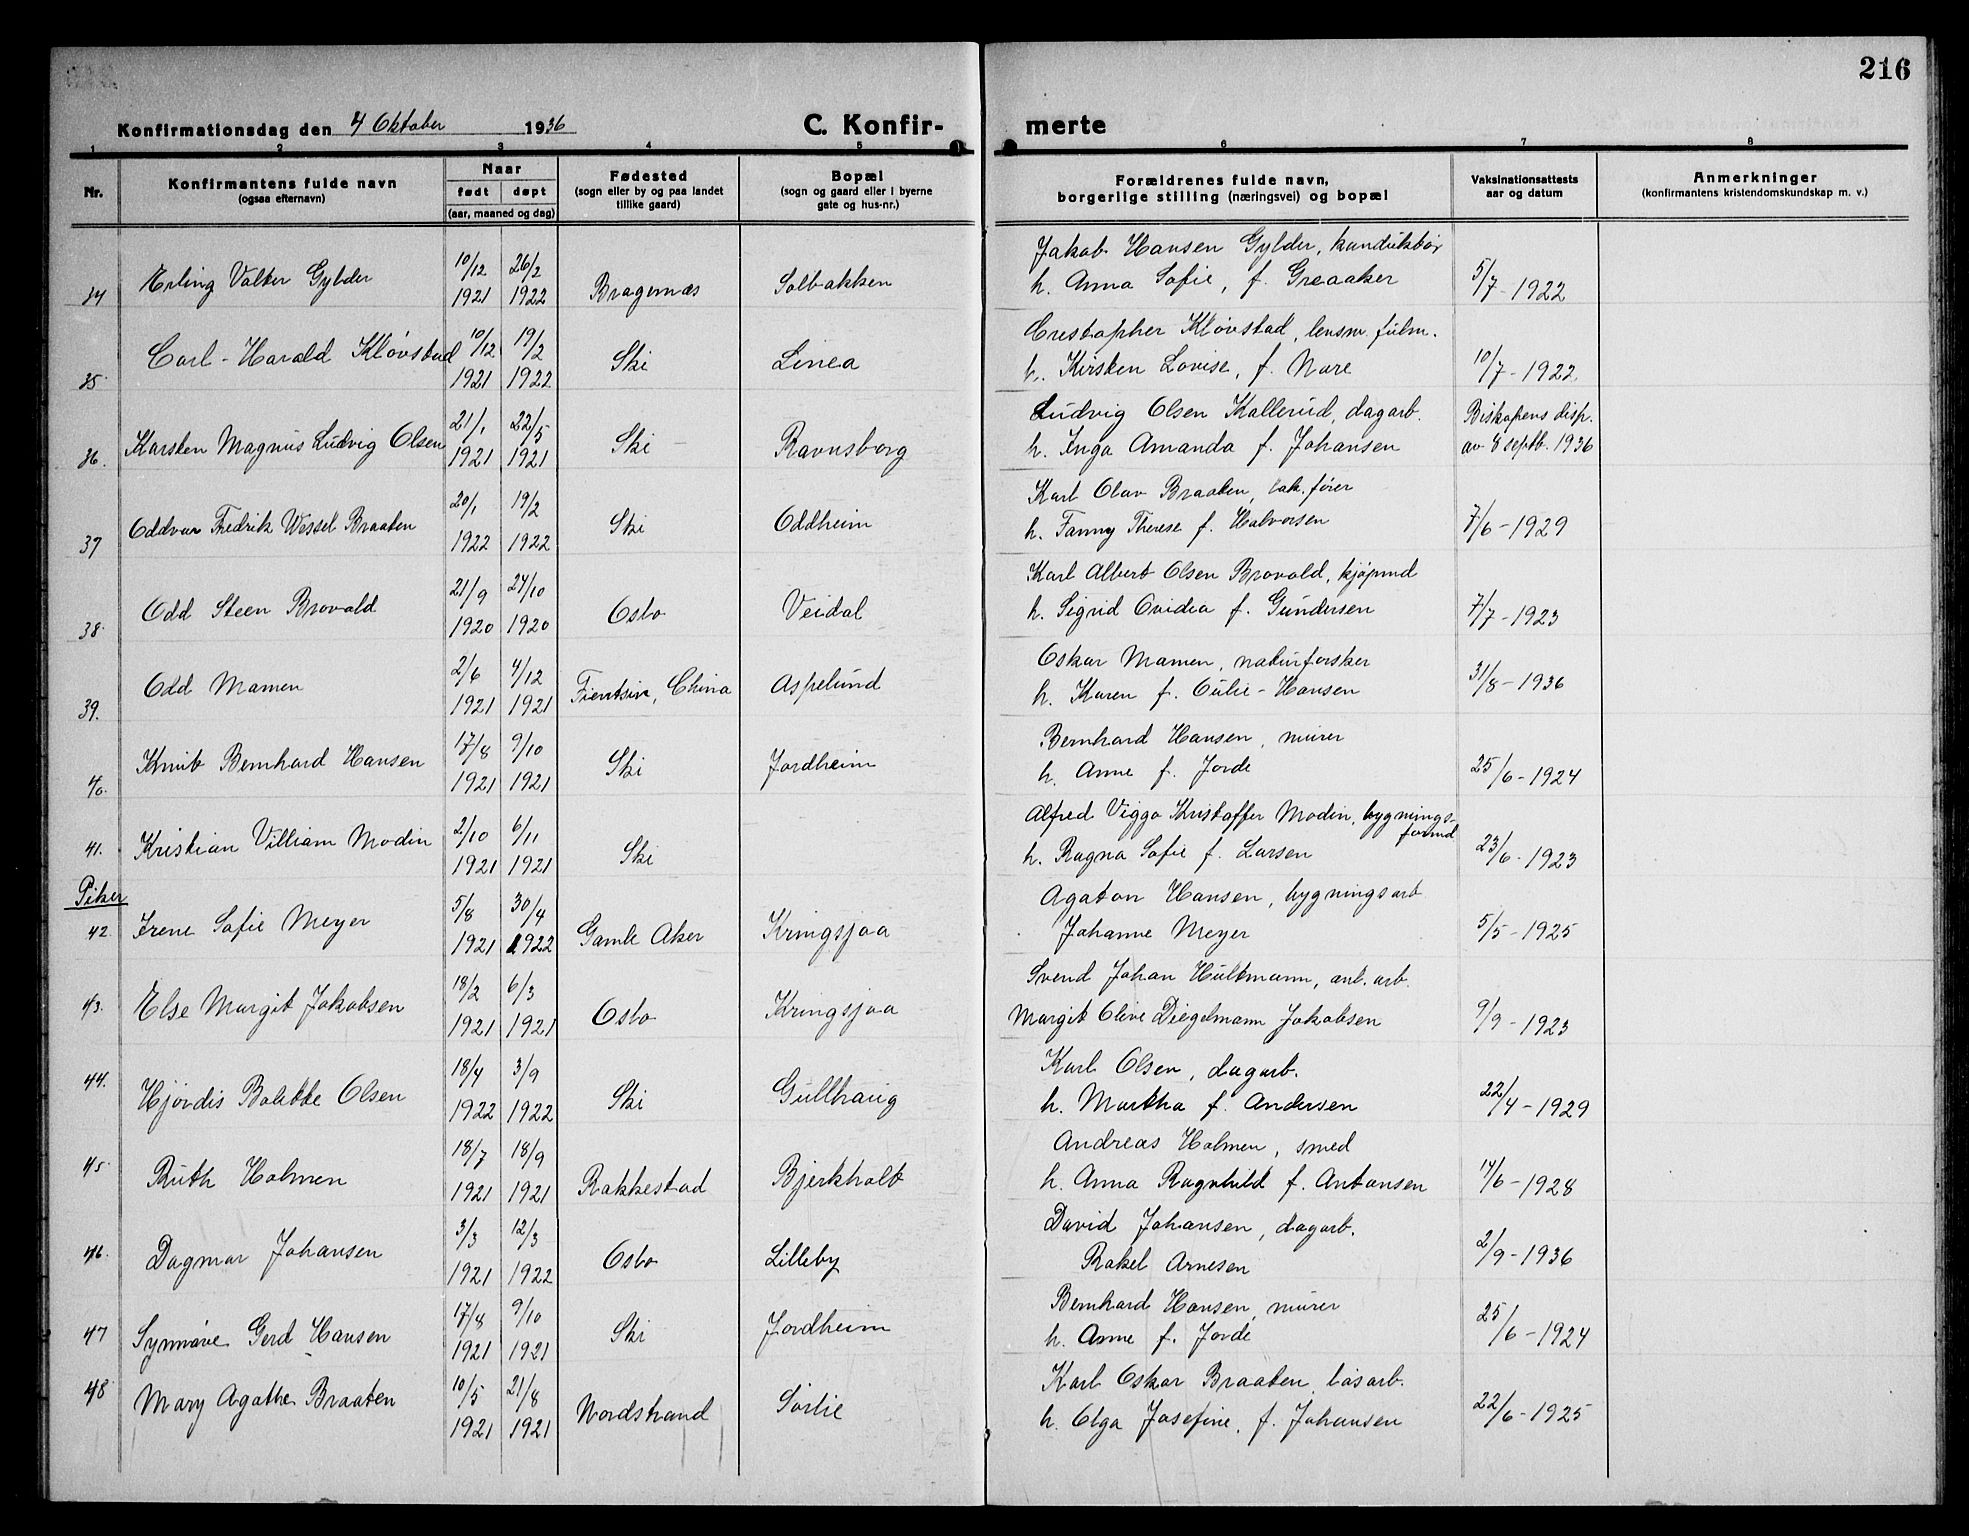 216
Konfirmationsdag den 4 Oktober 1936 C. Konfir- merte
1 2 3 4 5 6 7 8
Nr. Konfirmantens fulde navn (ogsaa efternavn) Naar født døpt (aar, maaned og dag) Fødested (sogn eller by og paa landet tillike gaard) Bopæl (sogn og gaard eller i byerne gate og hus-nr.) Forældrenes fulde navn, borgerlige stilling (næringsvei) og bopæl Vaksinationsattests aar og datum Anmerkninger (konfirmantens kristendomskundskap m. v.)
10/12 26/2 Jakob Hansen Gylder, konduktør
34 Erling Valter Gylder 1921 1922 Bragernæs Solbakken h. Anna Sofie, f. Greaaker 5/7-1922
10/12 19/2 Crestopher Kløvstad, lensm. fulm.
35. Carl-Harald Kløvstad 1921 1922 Ski Linea h. Kirsten Lovise, f. Nare 10/7-1922.
21/1 22/5 Ludvig Olsen Kallerud, dagarb. Biskopens disp.
36. Karsten Magnus Ludvig Olsen 1921 1921 Ski Ravnsborg h. Inga Amanda f. Johansen av 8 septb. 1936
20/1 19/2 Karl Olav Braaten, lok. fører
37 Oddvar Fredrik Wessel Braaten 1922 1922 Ski Oddheim h. Fanny Therese f. Halvorsen 7/6-1929
21/9 24/10 Karl Albert Olsen Brovold, kjøpmd
38. Odd Steen Brovold 1920 1920 Oslo Veidal h. Sigrid Ovidia f. Gundersen 7/7-1923
2/6 4/12 Oskar Mamen, naturforsker
39. Odd Mamen 1921 1921 Tientsin, China Aspelund h. Karen f. Oulie-Hansen 31/8-1936
17/8 9/10 Bernhard Hansen, murer
40. Knut Bernhard Hansen 1921 1921 Ski Jordheim h. Anne f. Jorde 25/6-1924
2/10 6/11 Alfred Viggo Kristoffer Modin, bygnings-
formd
41. Kristian Villiam Modin 1921 1921 Ski h. Ragna Sofie f. Larsen 23/6-1923
Piker
5/8 30/4 Agaton Hansen, bygningsarb
42. Irene Sofie Meyer 1921 1922 Gamle Aker Kringsjaa Johanne Meyer 5/5-1925
18/2 6/3 Svend Johan Hultmann, anl. arb.
43. Else Margit Jakobsen 1921 1921 Oslo Kringsjaa Margit Olive Diegelmann Jakobsen 9/9-1923
18/4 3/9 Karl Olsen, dagarb.
44. Hjørdis Bolette Olsen 1922 1922 Ski Gullhaug h. Martha f. Andersen 22/4-1929
18/7 18/9 Andreas Holmen, smed
45. Ruth Holmen 1921 1921 Rakkestad Bjerkholt h. Anna Ragnhild f. Antonsen 14/6-1928
3/3 12/3 David Johansen, dagarb.
46. Dagmar Johansen 1921 1922 Oslo Lilleby Rakel Arnesen 2/9-1936
17/8 9/10 Bernhard Hansen, murer
47 Synnøve Gerd Hansen 1921 1921 Ski Jordheim h. Anne f. Jorde 25/6-1924
10/5 21/8 Karl Oskar Braaten, løsarb.
48 Mary Agathe Braaten 1921 1921 Nordstrand Sørlie h. Olga Josefine, f. Johansen 22/6-1925